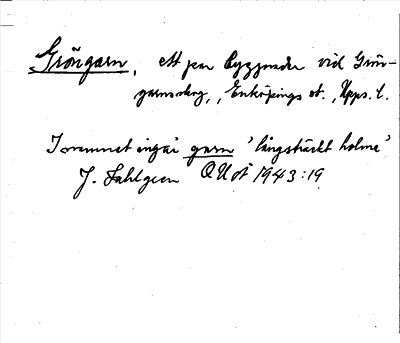 Gröngarn, ett par byggnader vid Grön-
garnsberg, Enköpings st., Upps. l.
I namnet ingår garn 'långsträckt holme'
J. Sahlgren OUÅ 1943:19